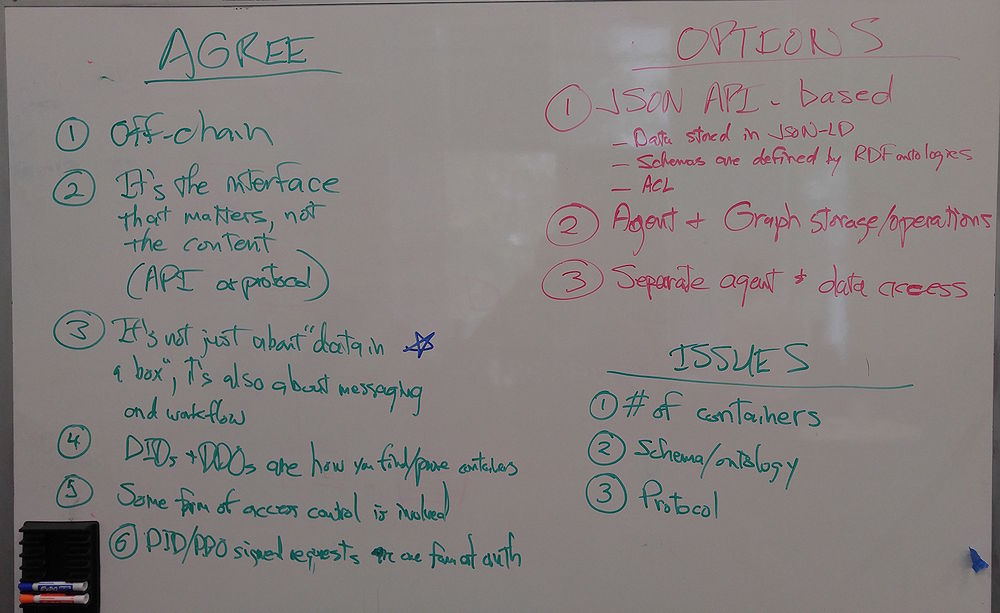 AGREE
① Off-chain
② It's the interface
that matters, not
the content
(API or protocol)
③ It's not just about "data in
a box", it's also about messaging
and workflow
④ DIDs + DDOs are how you find/prove containers
⑤ Some form of access control is involved
⑥ DID/DDO signed requests are one form of auth
OPTIONS
① JSON API - based
– Data stored in JSON-LD
– Schemas are defined by RDF ontologies
– ACL
② Agent + Graph storage/operations
③ Separate agent + data access
ISSUES
① # of containers
② Schema/ontology
③ Protocol